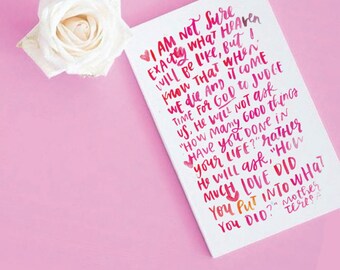 I AM NOT SURE
EXACTLY WHAT HEAVEN
WILL BE LIKE, BUT I
KNOW THAT WHEN
WE DIE AND IT COMES
TIME FOR GOD TO JUDGE
US, HE WILL NOT ASK
"HOW MANY GOOD THINGS
HAVE YOU DONE IN
YOUR LIFE?" RATHER
HE WILL ASK, "HOW
MUCH LOVE DID
YOU PUT INTO WHAT
YOU DID?" MOTHER
TERESA